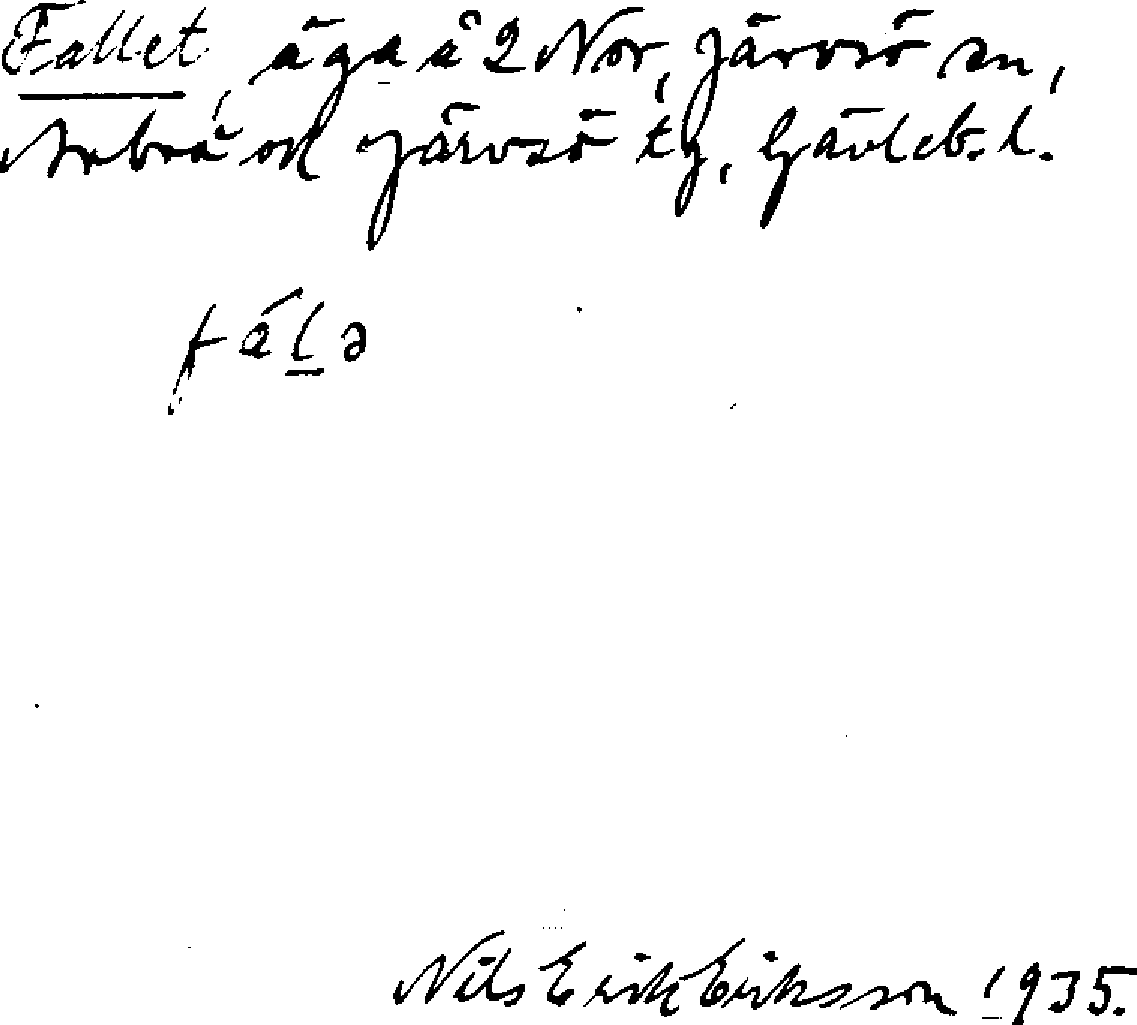 Fallet, äga å 2 Nor, Järvsö sn,
Arbrå ok Järvsö tg, Gävleb. l.
fáḻə
Nils Erik Eriksson 1935.